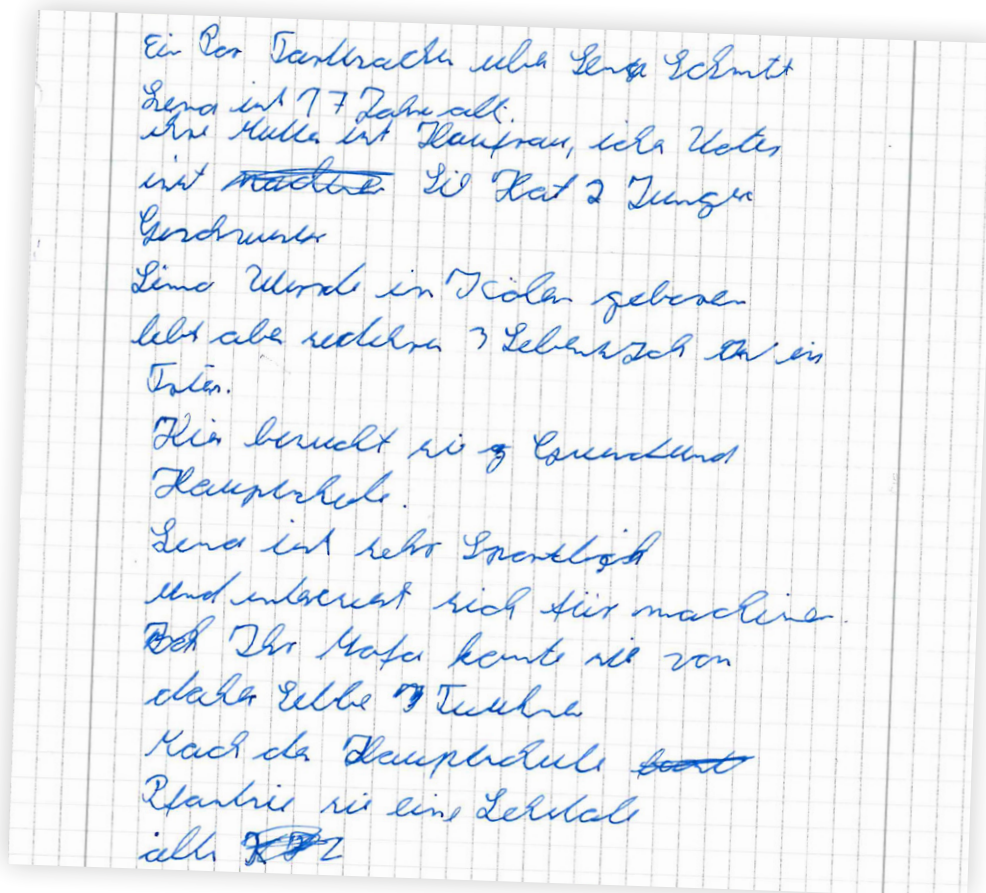 Ein Par Tartsrachen uber Lena Schmitt
Lena ist 17 Jahre alt.
ihre Mutter ist Hausfrau, ihr Vater
ist Sie Hat 2 Junger
Geschwister
Lena Wurde in Kölen geboren
lebt aber seit ihren 3 Lebens Jah in
Hier besucht sie Grund und
Hauptschule.
Lena ist sehr Sportlich
und interesiert sich für machinen.
Ihr Mofa konte sie von
daher Selbe Tunhen
Nach der Hauptschule
sie eine Lehrstale
als